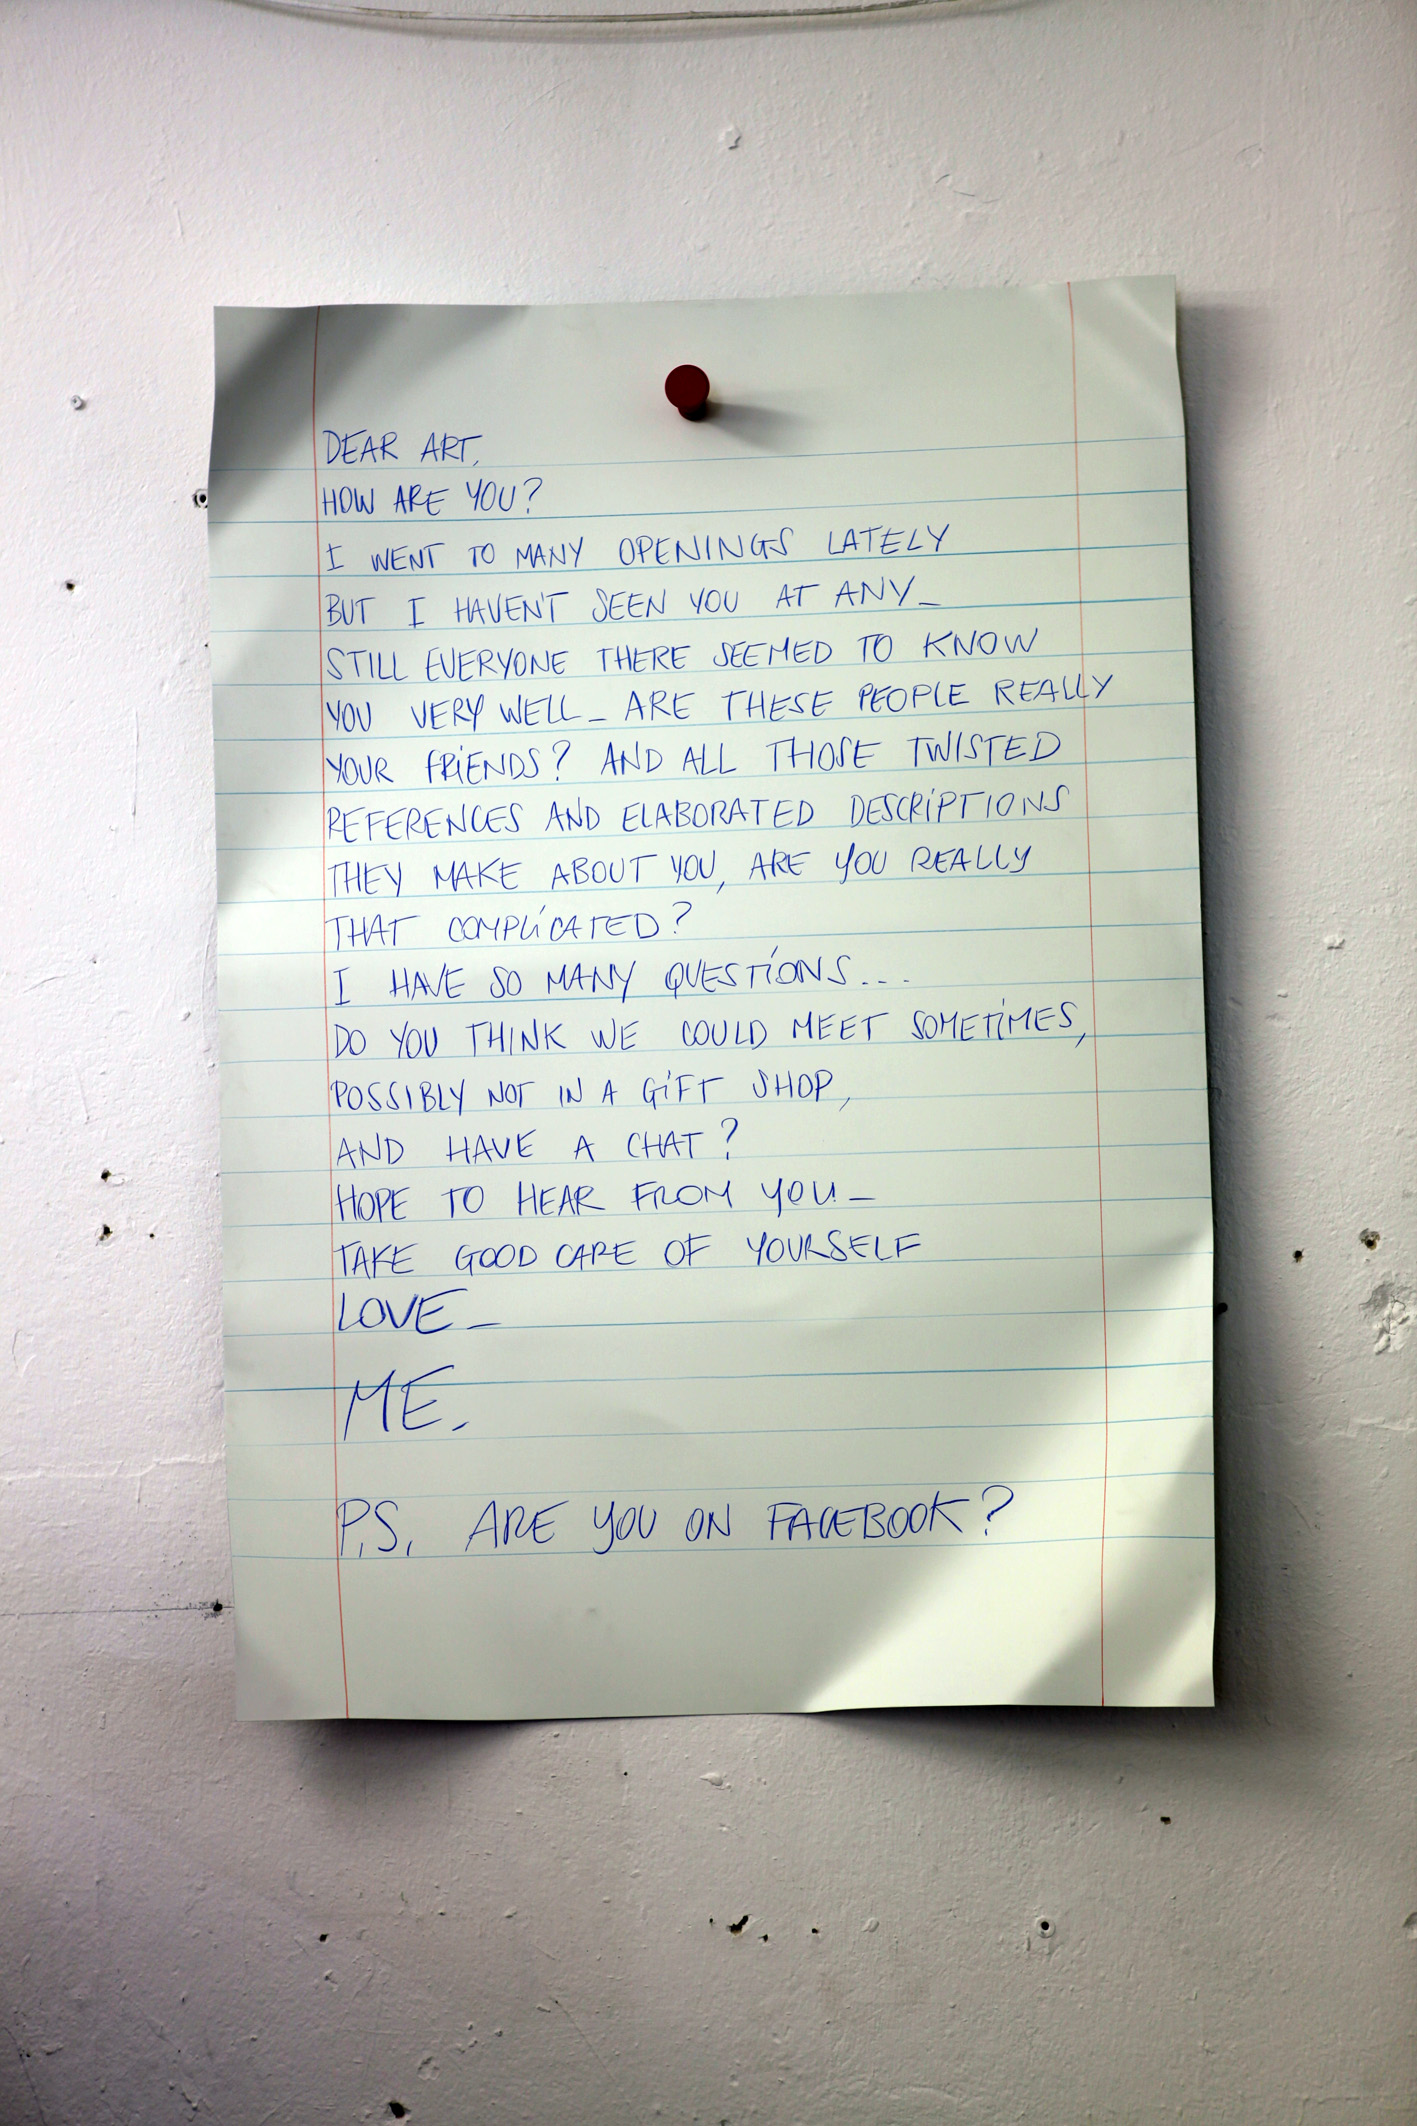 DEAR ART,
HOW ARE YOU?
I WENT TO MANY OPENINGS LATELY
BUT I HAVEN'T SEEN YOU AT ANY_
STILL EVERYONE THERE SEEMED TO KNOW
YOU VERY WELL_ ARE THESE PEOPLE REALLY
YOUR FRIENDS? AND ALL THOSE TWISTED
REFERENCES AND ELABORATED DESCRIPTIONS
THEY MAKE ABOUT YOU, ARE YOU REALLY
THAT COMPLICATED?
I HAVE SO MANY QUESTIONS...
DO YOU THINK WE COULD MEET SOMETIMES,
POSSIBLY NOT IN A GIFT SHOP,
AND HAVE A CHAT?
HOPE TO HEAR FROM YOU_
TAKE GOOD CARE OF YOURSELF
LOVE_
ME.
P.S. ARE YOU ON FACEBOOK?